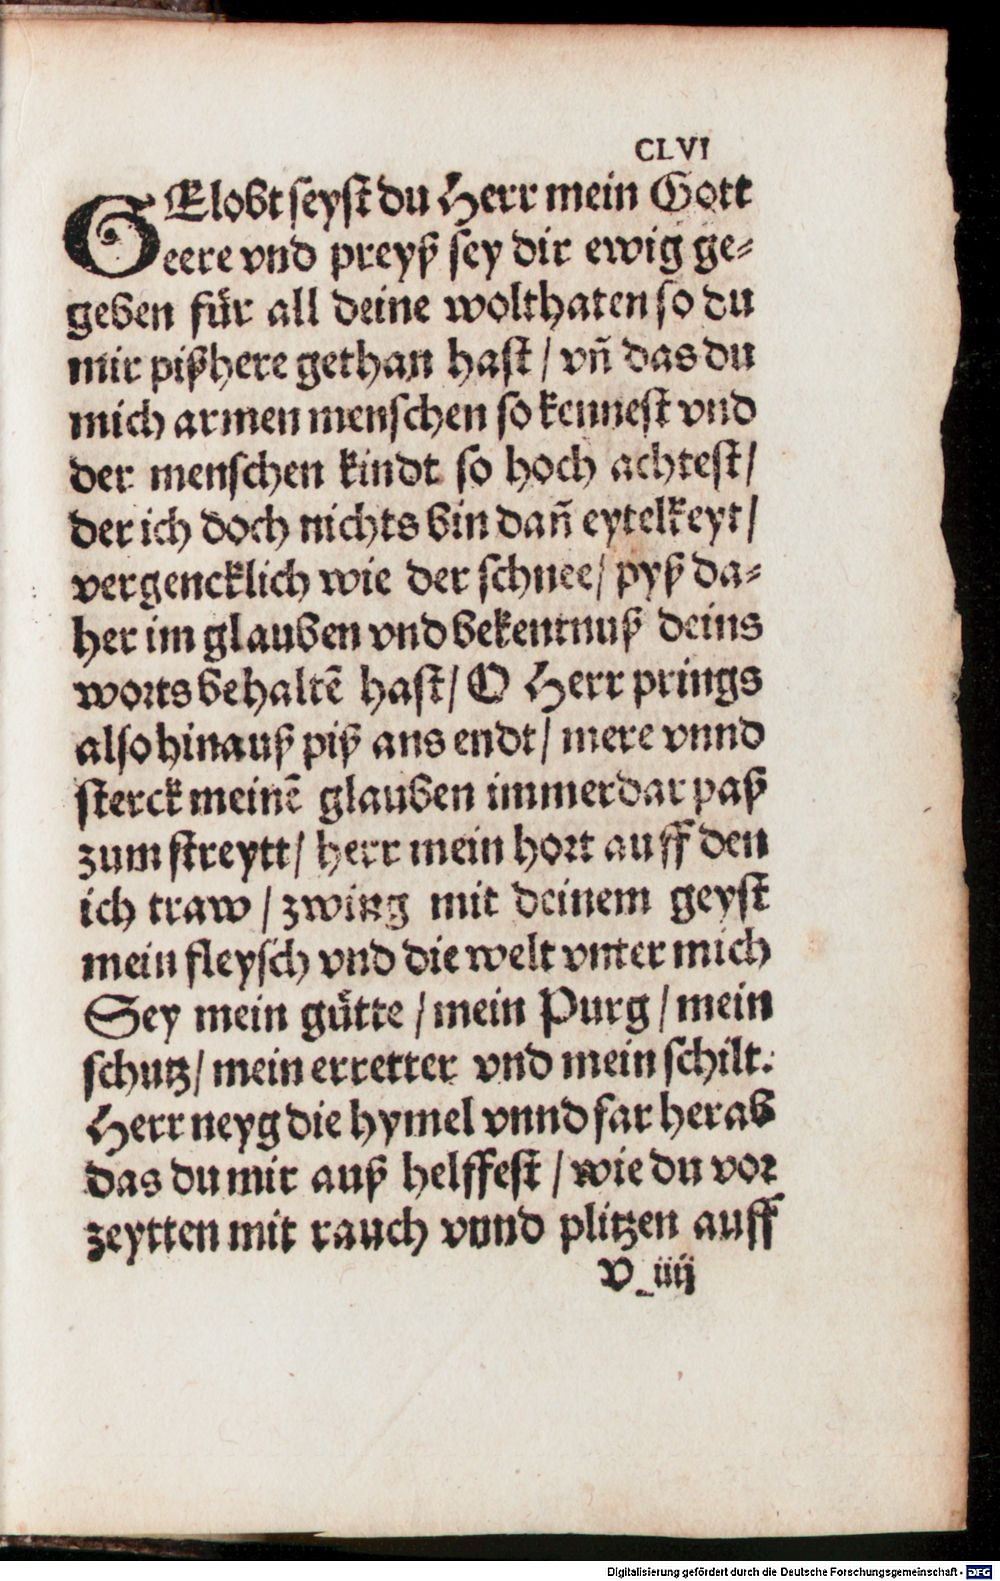 CLVI
GElobt seyst du Herr mein Gott
eere vnd preyß sey dir ewig ge-
geben für all deine wolthaten so du
mir pißhere gethan hast / vñ das du
mich armen menschen so kennest vnd
der menschen kindt so hoch achtest /
der ich doch nichts bin dañ eytelkeyt /
vergencklich wie der schnee / pyß da-
her im glauben vnd bekentnuß deins
worts behaltē hast / O Herr prings
also hinauß piß ans endt / mere vnnd
sterck meinē glauben immerdar paß
zum streytt / herr mein hort auff den
ich traw / zwing mit deinem geyst
mein fleysch vnd die welt vnter mich
Sey mein gütte / mein Purg / mein
schutz / mein erretter vnd mein schilt.
Herr neyg die hymel vnnd far herab
das du mir auß helffest / wie du vor
zeytten mit rauch vnnd plitzen auff
V iiij
Digitalisierung gefördert durch die Deutsche Forschungsgemeinschaft - DFG